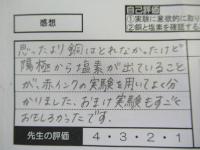 感想
自己評価
①実験に意欲的に取り
②銅と塩素を確認する
思ったより銅はとれなかったけど
陽極から塩素が出ていること
が、赤インクの実験を用いてよく分
かりました。おまけ実験もすごく
おもしろかったです。
先生の評価
4・3・2・1